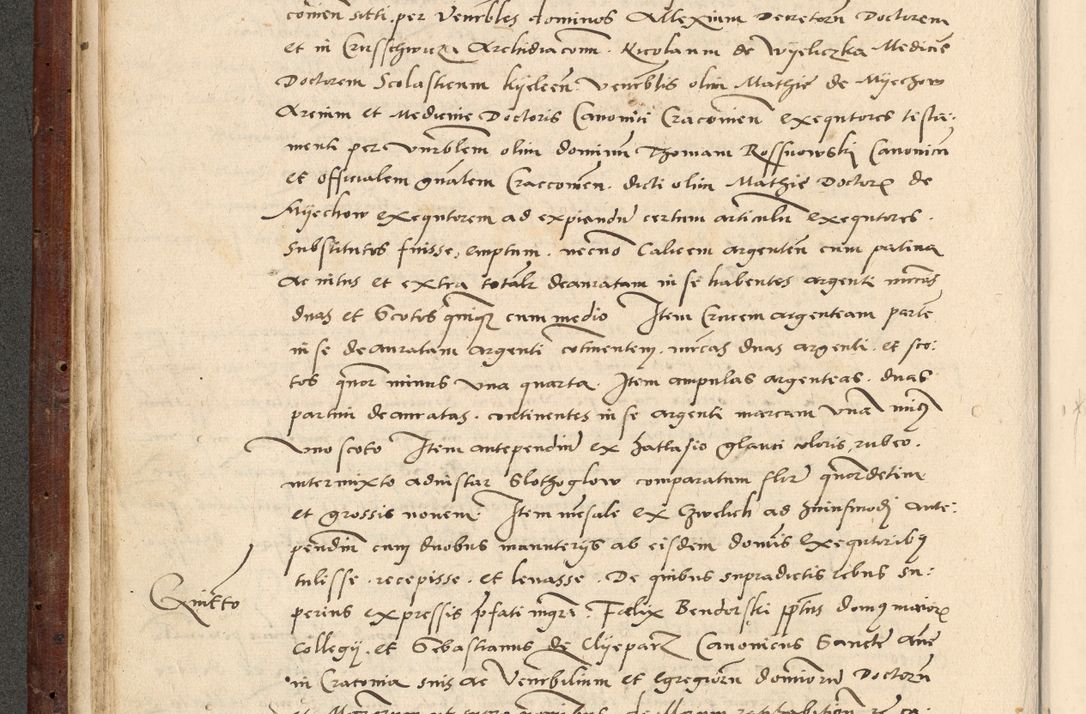 comen sitti per Venerbles dominos Allexium Decretorum Doctorem
et in Crusschwicza Archidiaconum. Nicolaum de Wyeliczka Medicine
Doctorem Scolasticum kijelcen: venerblis olim Mathie de Myechow
Arcium et Medicine Doctoris Canonici Cracovien exequtores testa:
menti per vnrblem olim dominum Thomam Rossnowskj Canonicum
et officialem gnalem Craccovien. dicti olim Mathie Doctoris de
Myechow exequtorem ad expiendum certum articulum exequtores.
substitutos fuisse, emptum. necno Calicem argenteum cum patina
ac intus et extra totalr deauratam in se habentes argenti mrcas
duas et Scotos quinque cum medio Item Crucem argenteam parte
in se deauratam argenti cotinentem. mrcas duas argenti. et sco:
tos quor minus vna quarta. Item ampulas argenteas. duas
partim deauratas. continentes in se argenti marcam vnam minus
vno scoto Item antependium ex zattasio glauci coloris, rubeo.
intermixto adinstar Slothoglow comparatum flor quordecim
et grossis novem: Item mensale ex Czwelich ad huiusmodi ante:
pendium cum duobus manuterijs ab eisdem dominis exequtoribus
tulisse. recepisse. et levasse. De quibus supradictis rebus su:
Quietto
perius expressis prefati mgri Faelix Bendorski pptus domus maioris
Collegij. et Sebastianus de Clijeparz Canonicus Sancte Anne
in Cracovia suis ac Venerbilium et egregiorum dominorum Doctorum